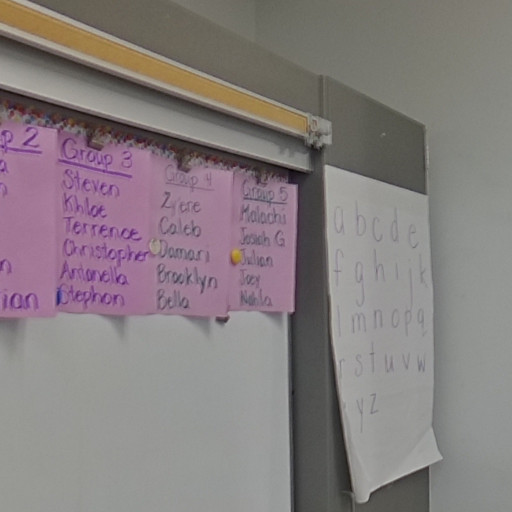 p 2
a
n
n
ian
Group 3
Steven
Khloe
Terrence
Christopher
Antonella
Stephon
Group 4
Zy'ere
Caleb
Damari
Brooklyn
Bella
Group 5
Malachi
Josiah G
Julian
Joey
a b c d e
f g h i j k
l m n o p q
r s t u v w
y z